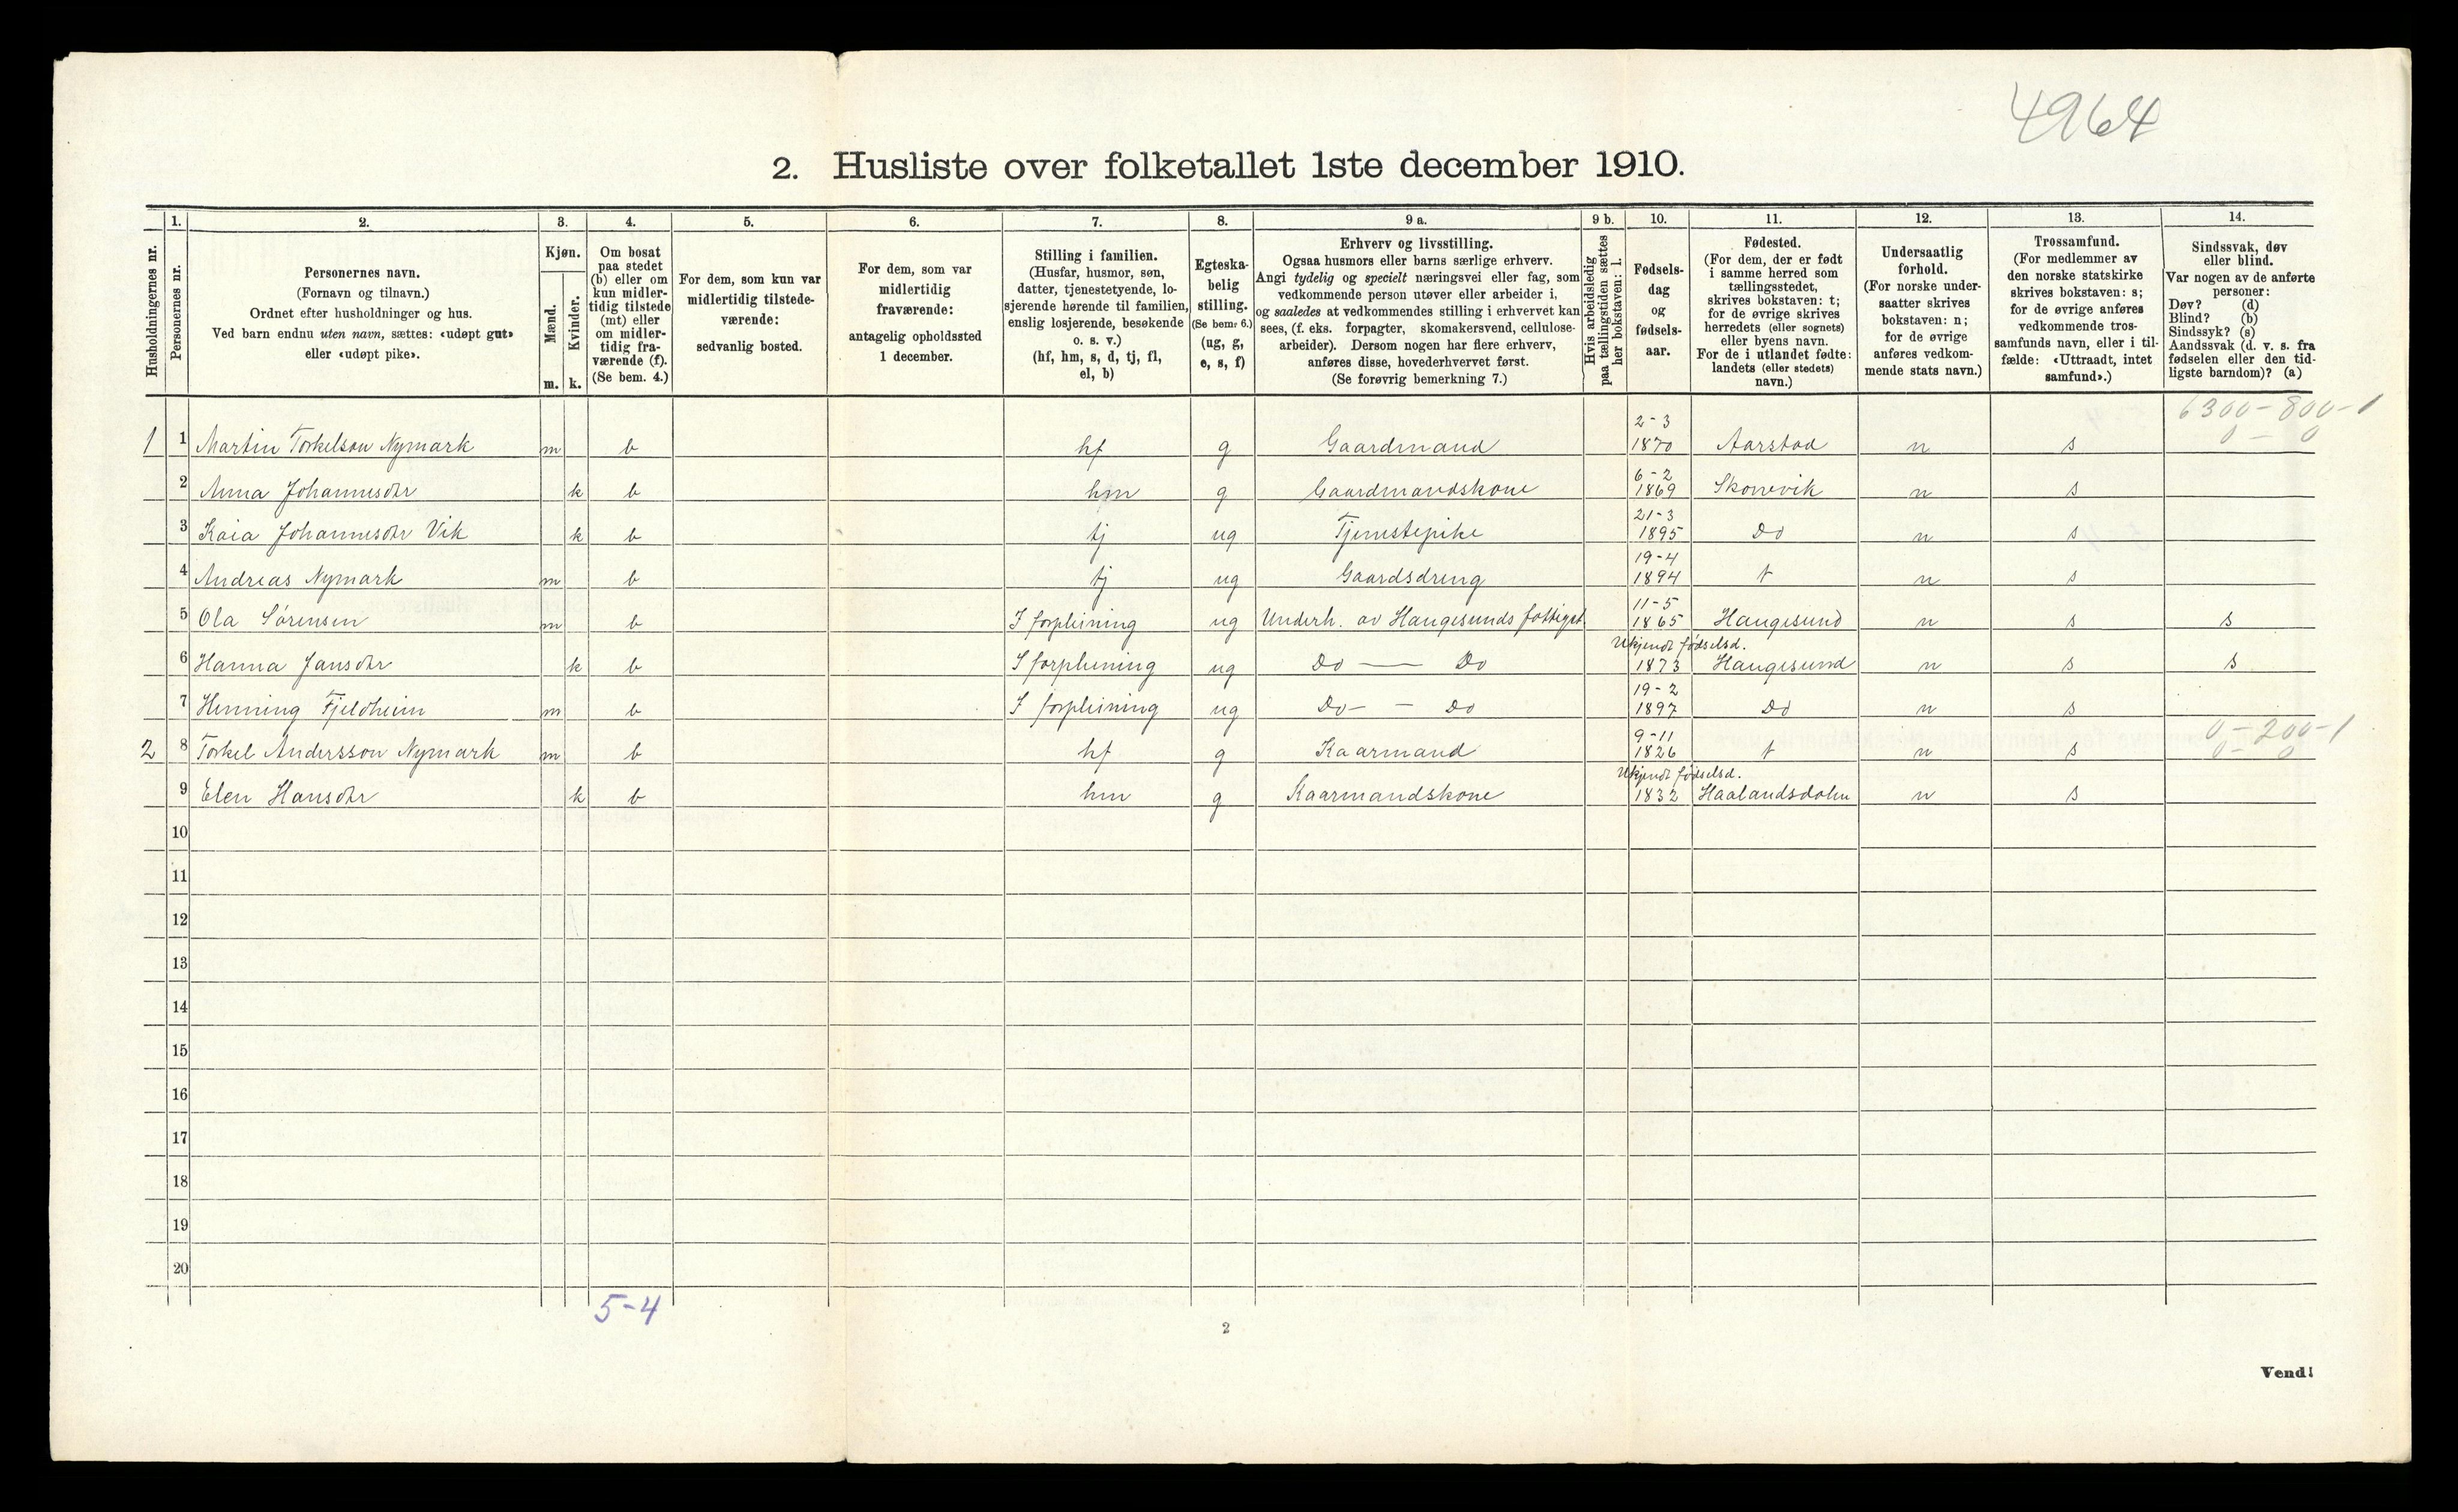 4964
2. Husliste over folketallet 1ste december 1910.
1. 2. 3. 4. 5. 6. 7. 8. 9 a. 9 b. 10. 11. 12. 13. 14.
Husholdningernes nr.
Personernes nr.
Personernes navn.
(Fornavn og tilnavn.)
Ordnet efter husholdninger og hus.
Ved barn endnu uten navn, sættes: «udøpt gut»
eller «udøpt pike».
Kjøn.
Mænd.
m.
Kvinder.
k.
Om bosat
paa stedet
(b) eller om
kun midler-
tidig tilstede
(mt) eller
om midler-
tidig fra-
værende (f).
(Se bem. 4.)
For dem, som kun var
midlertidig tilstede-
værende:
sedvanlig bosted.
For dem, som var
midlertidig
fraværende:
antagelig opholdssted
1 december.
Stilling i familien.
(Husfar, husmor, søn,
datter, tjenestetyende, lo-
sjerende hørende til familien,
enslig losjerende, besøkende
o. s. v.)
(hf, hm, s, d, tj, fl,
el, b)
Egteska-
belig
stilling.
(Se bem. 6.)
(ug, g,
e, s, f)
Erhverv og livsstilling.
Ogsaa husmors eller barns særlige erhverv.
Angi tydelig og specielt næringsvei eller fag, som
vedkommende person utøver eller arbeider i,
og saaledes at vedkommendes stilling i erhvervet kan
sees, (f. eks. forpagter, skomakersvend, cellulose-
arbeider). Dersom nogen har flere erhverv,
anføres disse, hovederhvervet først.
(Se forøvrig bemerkning 7.)
Hvis arbeidsledig
paa tællingstiden sættes
her bokstaven: l.
Fødsels-
dag
og
fødsels-
aar.
Fødested.
(For dem, der er født
i samme herred som
tællingsstedet,
skrives bokstaven: t;
for de øvrige skrives
herredets (eller sognets)
eller byens navn.
For de i utlandet fødte:
landets (eller stedets)
navn.)
Undersaatlig
forhold.
(For norske under-
saatter skrives
bokstaven: n;
for de øvrige
anføres vedkom-
mende stats navn.)
Trossamfund.
(For medlemmer av
den norske statskirke
skrives bokstaven: s;
for de øvrige anføres
vedkommende tros-
samfunds navn, eller i til-
fælde: «Uttraadt, intet
samfund».)
Sindssvak, døv
eller blind.
Var nogen av de anførte
personer:
Døv? (d)
Blind? (b)
Sindssyk? (s)
Aandssvak (d. v. s. fra
fødselen eller den tid-
ligste barndom)? (a)
6300-800-1
0 - 0
1 1 Martin Torkelson Nymark m b hf g Gaardmand 2-3 1870 Aarstad n s
2 Anna Johannesdtr k b hm g Gaardmandskone 6-2 1869 Skonevik n s
3 Kaia Johannesdtr Vik k b tj ug Tjenestepike 21-3 1895 Do n s
4 Andreas Nymark m b tj ug Gaardsdreng 19-4 1894 t n s
5 Ola Sørensen m b I forpleining ug Underh. av Haugesunds fattigst. 11-5 1865 Haugesund n s s
6 Hanna Jansdtr k b I forpleining ug Do — Do Ukjendt fødselsd. 1873 Haugesund n s s
7 Henning Fjeldheim m b I forpleining ug Do - - Do 19-2 1897 Do n s
0-200-1
0- 0
2 8 Torkel Andersson Nymark m b hf g Kaarmand 9-11 1826 t n s
9 Elen Hansdtr k b hm g Kaarmandskone Ukjendt fødselsd. 1832 Haalandsdalen n s
10
11
12
13
14
15
16
17
18
19
20
5-4
2
Vend!